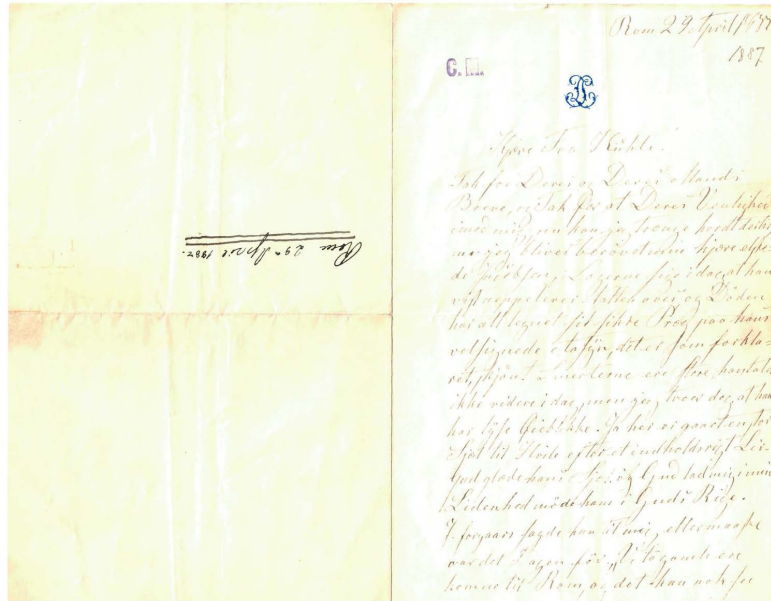 Rom 29 April 1887
1887
C. M.
Kjære Fru Kühle!
Tak for Deres og Deres Mand's
Breve, og Tak for at Deres Venlighed
imod mig, nu han ja
meg bliver berøvet min kjære
de Jacobsen, Lægerne sige i dag at han
vist Natten over og Døden
har alt tegnet sit sikre Præg paa hans
velsignede Aasyn, det er som forkla-
ret, skjønt Smerterne ere flere, han taler
ikke videre i dag, men jeg troer dog at han
har lyse Øieblikke. Ja her er gaaet en stor
Sjæl til Hvile efter et indholdsrigt Liv.
Gud glæde hans Sjæl, og Gud lad mig i min
Lidenhed møde ham i Guds Rige.
I forgaars sagde han til mig, eller maaske
var det Dagen før, "Vi to gamle ere
komne til Rom, og det kan nok see
Rom 29th April 1887.